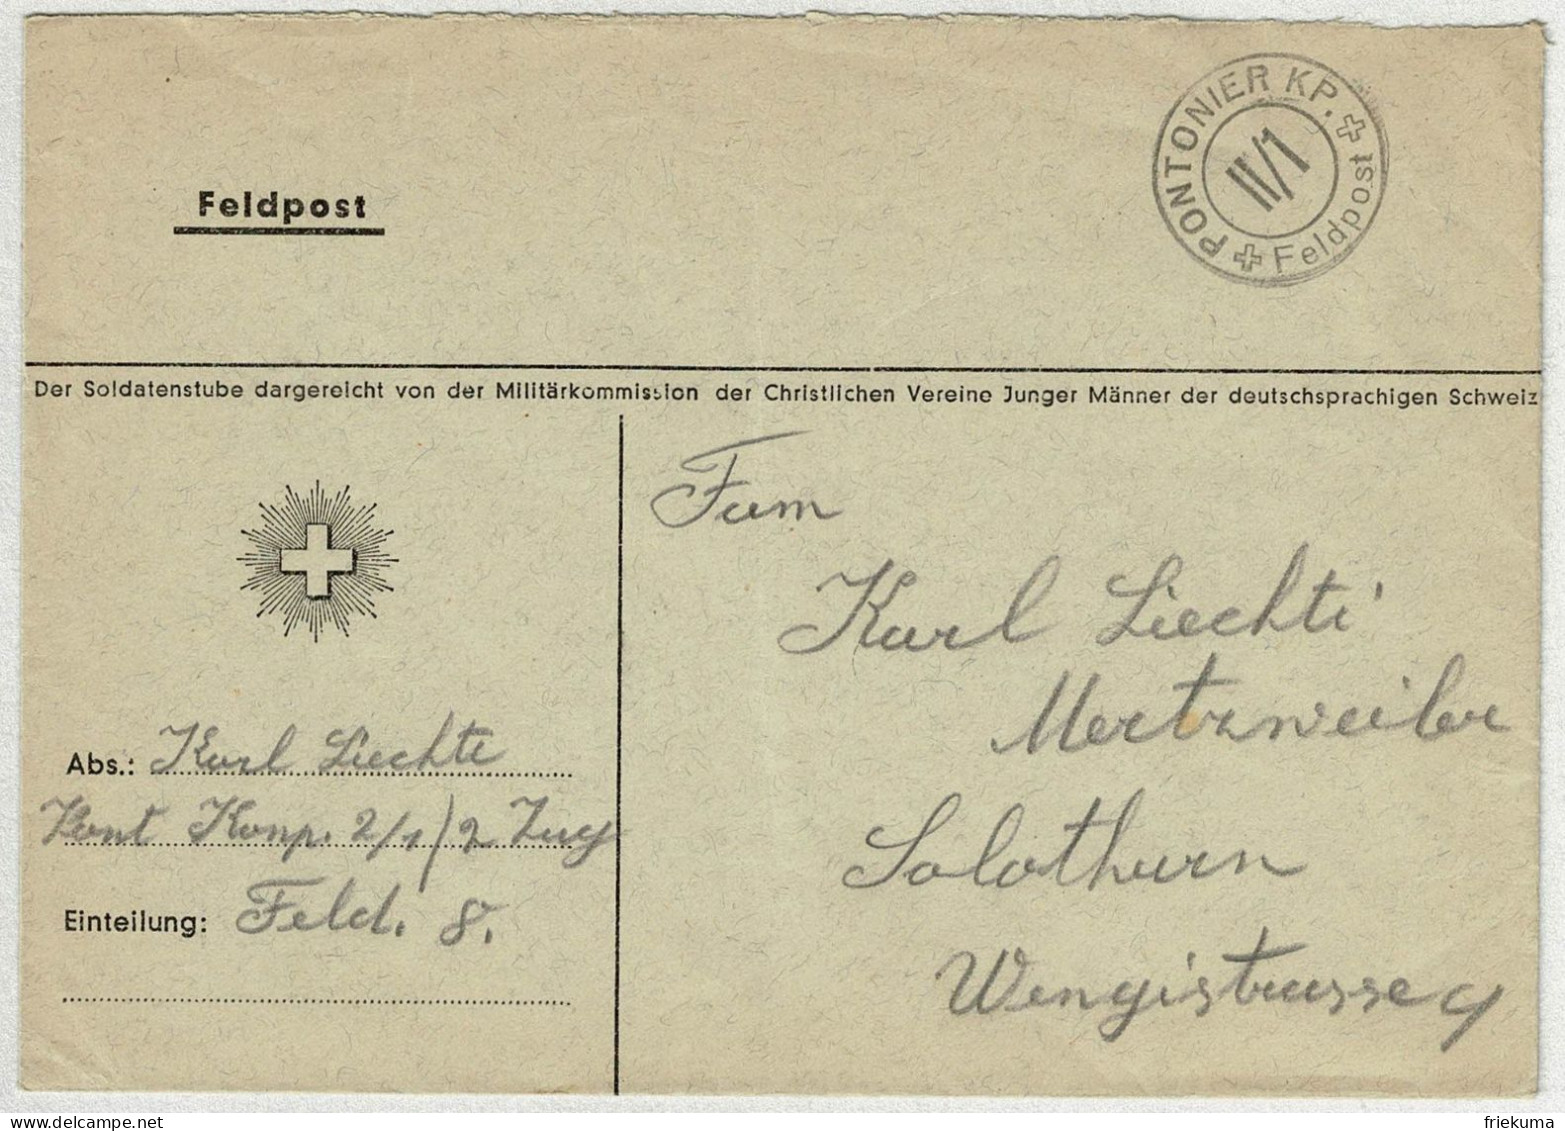 PONTONIER KP.
II/1
Feldpost
Feldpost
Der Soldatenstube dargereicht von der Militärkommission der Christlichen Vereine Junger Männer der deutschsprachigen Schweiz
Fam
Karl Liechti
Mertzweiler
Solothurn
Wengistrasse 9
Abs.: Karl Liechti
Pont Komp. 2/1/2 Zug
Einteilung: Feld. 8.
friekuma